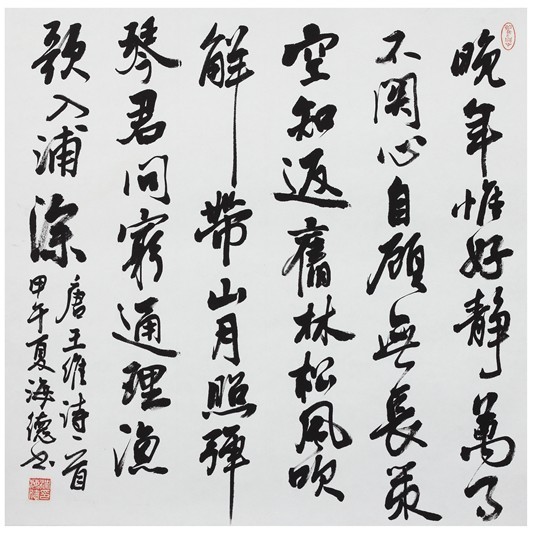 晚年惟好静萬事
不関心自顧無長策
空知返舊林松风吹
解带山月照弹
琴君问窮通理渔
歌入浦深
唐王维诗一首
甲午夏海德书